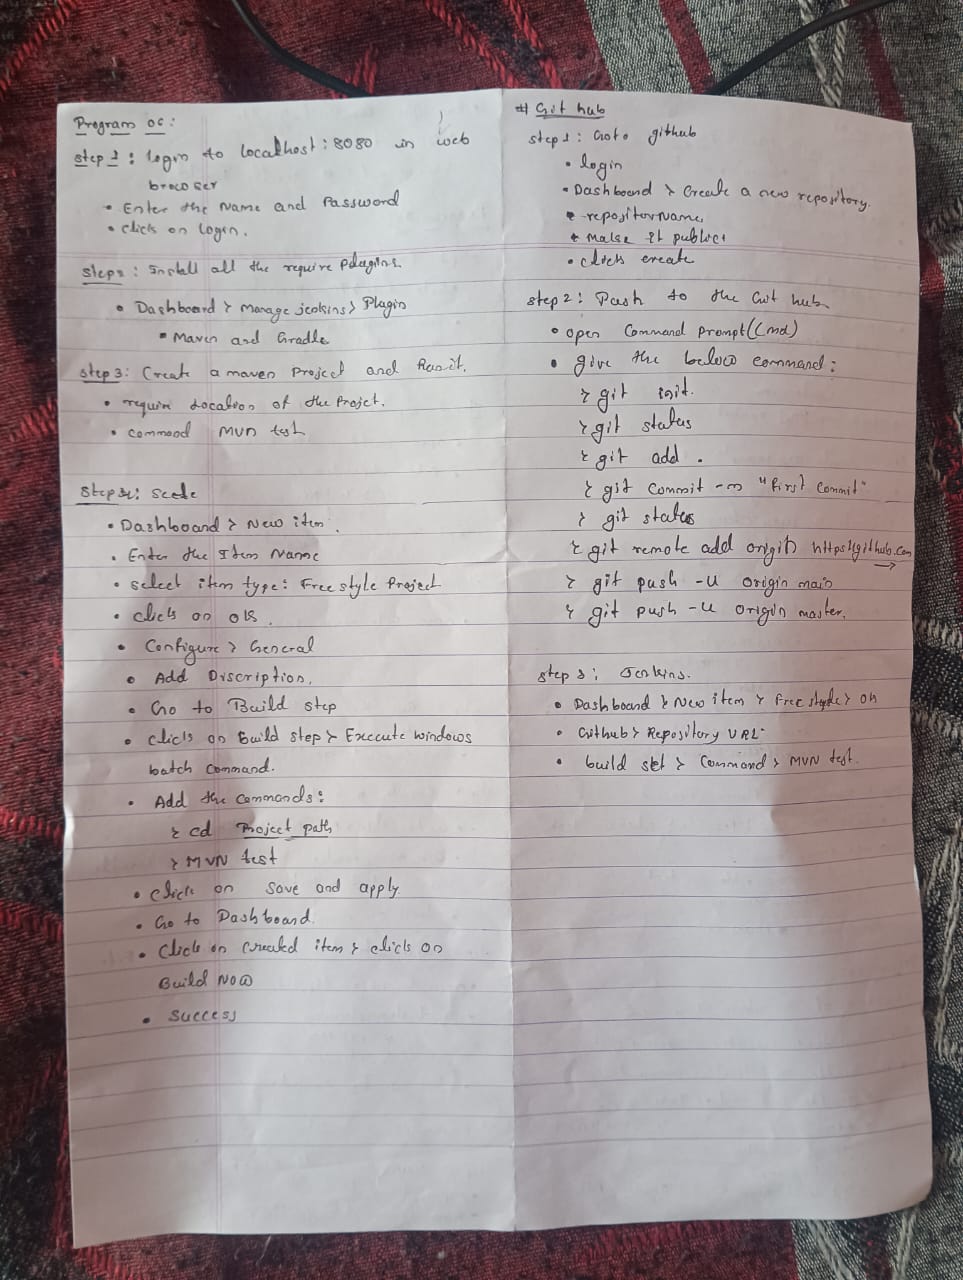 Program 06:
Step 1: login to localhost:8080 in web
browser
• Enter the Name and Password
• click on login.
Step2: Install all the require Plugins.
• Dashboard > Manage jenkins > Plugin
• Maven and Gradle
Step 3: Create a maven Project and Run it.
• require Location of the Projet.
• command MVN test
Step 4:
• Dashboard > New item.
• Enter the Item Name
• select item type: Free style Project
• click on ok.
• Configure > General
• Add Discription.
• Go to Build step
• click on Build step > Execute windows
batch command.
• Add the commands:
> cd Project path
> MVN test
• click on save and apply.
• Go to Dashboard.
• Click on created item > click on
Build Now
• Success
# Git hub
step 1: Goto github
• login
• Dashboard > Create a new repository.
• repositorName
• make it public
• click create
step 2: Push to the Git hub
• open Command prompt (Cmd)
• give the below command:
> git init.
> git status
> git add .
> git commit -m "first commit"
> git status
> git remote add origin https://github.com
> git push -u origin main
> git push -u origin master.
step 3: Jenkins.
• Dashboard > New item > Free style > ok
• Github > Repository URL
• build set > Command > MVN test.